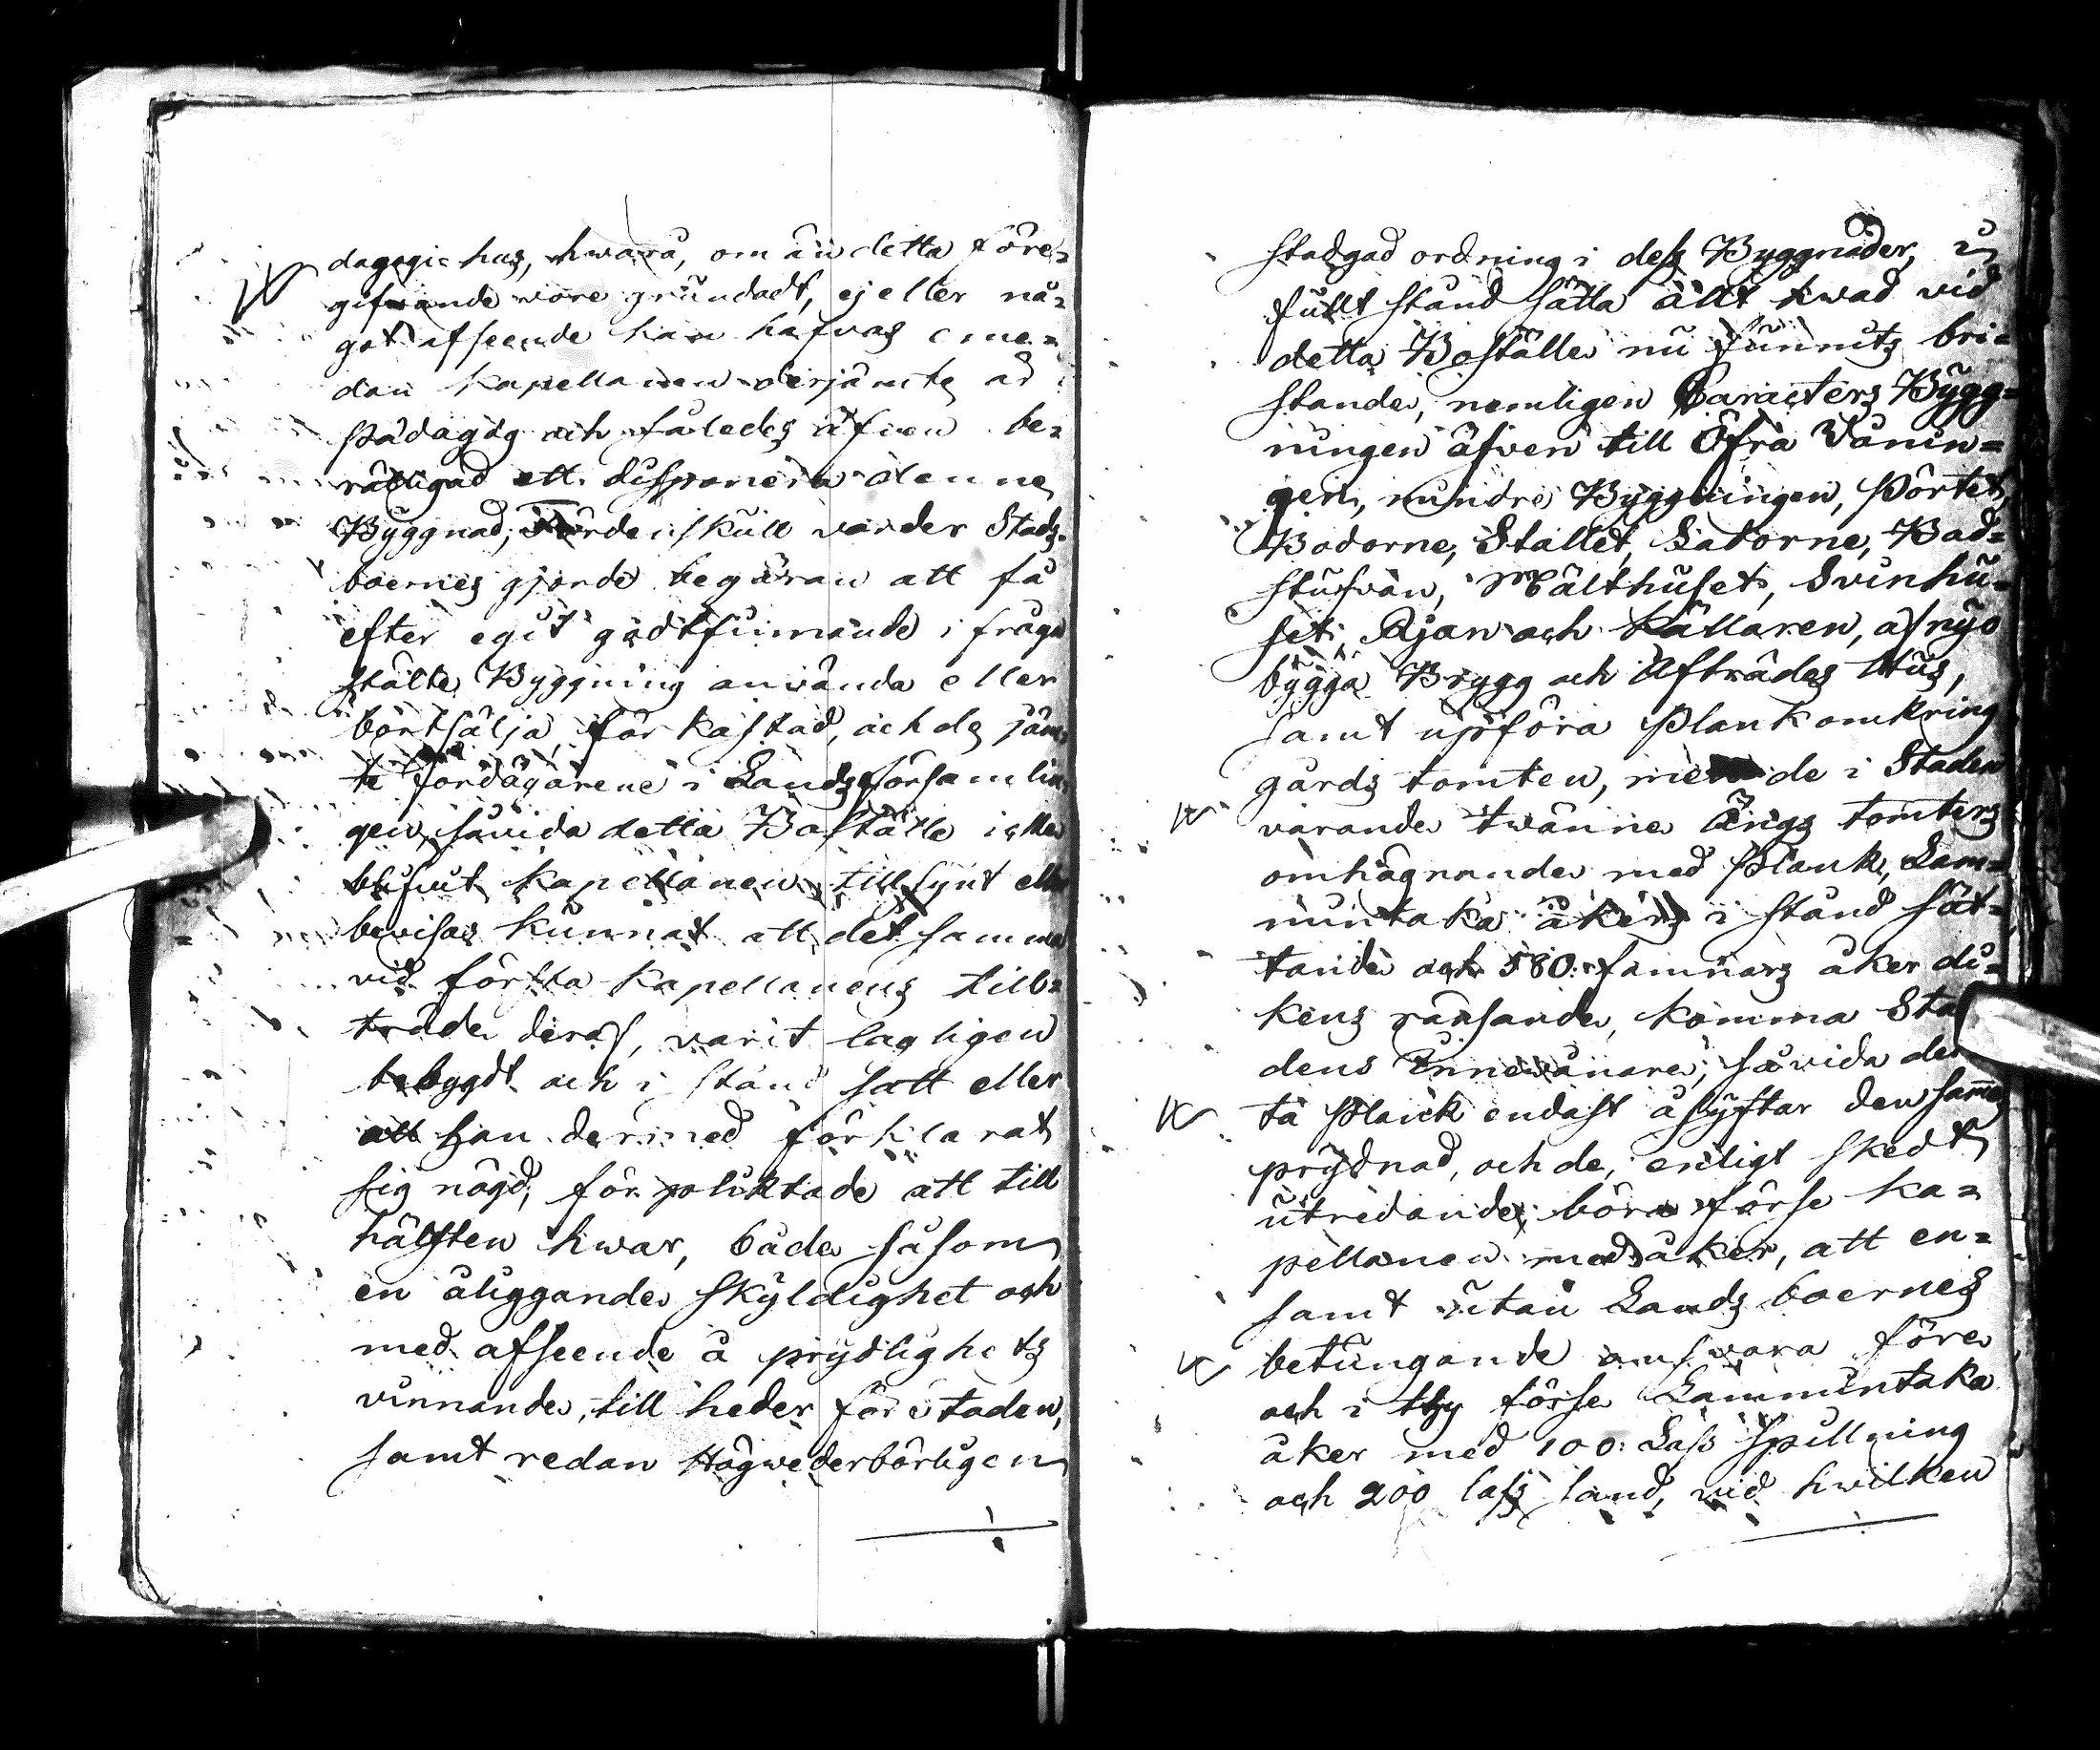 dagogie hus, hwarå, om än detta före=
gifvande vore grundadt, ej eller nå=
got afseende kan hafvas eme=
dan Kapellanen derjämte är
Pädagog och således äfven be=
rättigad att disponera denne
Byggnad; Fördenskull varder Stads-
boernes gjorde begäran att få
efter egit godtfinnande i fråga
stälte Byggning använda eller
bortsälja, förkastad, och de jäm=
te Jordägarene i Landsförsamlin=
gen, såvida detta Boställe icke
blifvit Kapellanen tillsynt eller
bevisas kunnat att det samma
vid första Kapellanens till=
träde deraf, varit lagligen
bebygdt och i stånd satt eller
att Han dermed förklarat
sig nögd, förpliktade att till
hälften hwar, både såsom
en åliggande skyldighet och
med afseende å prydlighets
vinnande, till heder för staden,
samt redan Högwederbörligen
stadgad ordning i dess Byggnader, i
fullt stånd sätta allt hwad vid
detta Boställe nu funnits bri=
stande, nemligen Caracters Bygg=
ningen äfven till Öfra Vånin=
gen, mindre Byggningen, Pörtet,
Bodorne, Stallet, Ladorne, Bad=
stufvan, Mälthuset, Svinhu=
set, Rian och Källaren, af nyo
bygga Brygg och Afträdes Hus,
samt upföra Plank omkring
gårds tomten, men de i Staden
varande twänne Ängs tomters
omhägnande med Plank, Lam=
minkaka åkers i stånd sät=
tande och 580: famnars åker di=
kens ränsande, komma Sta
dens Innevånare, såvida det
ta Planck endast åsyftar den sames
prydnad, och de, enligt skedt
utredande, böra förse Ka=
pellanen med åker, att en=
samt utan Lands boernes
betungande answara före
och i thy förse Lammintaka
åker med 100: Lass Spillning
och 200 lass sand, vid hwilken